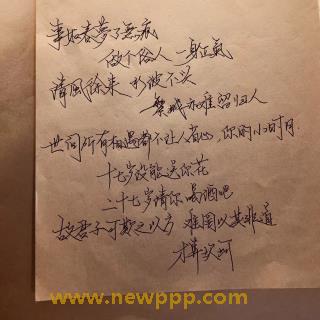 事如春梦了无痕
做个俗人 一身正气
清风徐来 水波不兴
繁城亦难留归人
世间所有相遇都不让人省心，你的小时月
十七岁没能送你花
二十七岁请你喝酒吧
故君子可欺之以方 难罔以其非道
www.newppp.com